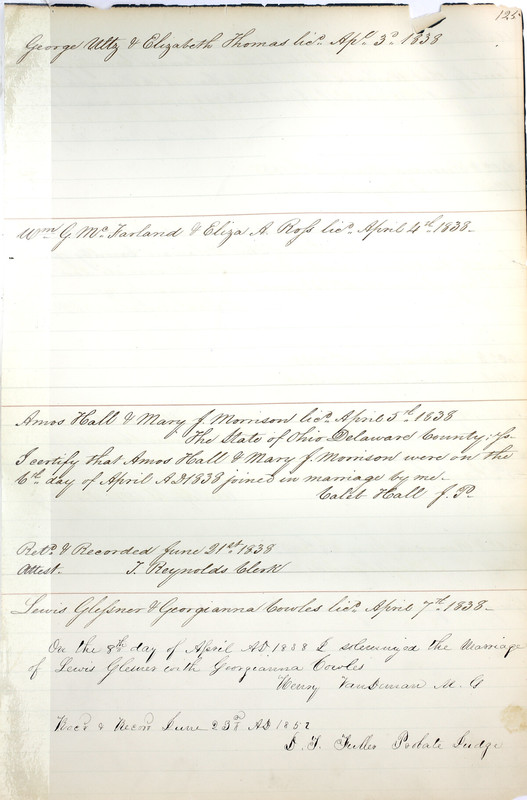 125
George Utz & Elizabeth Thomas licd. Apl. 3d. 1838
Wm G. Mc.Farland & Eliza A. Ross licd. April 4th. 1838-
Amos Hall & Mary J. Morrison licd. April 5th. 1838
The State of Ohio Delaware County; Ss.
I certify that Amos Hall & Mary J. Morrison were on the
6th. day of April AD1838 joined in marriage by me-
Caleb Hall J. P.
Retd. & Recorded June 21st. 1838
Attest. T. Reynolds Clerk
Lewis Glessner & Georgianna Cowles licd. April 7th. 1838-
On the 8th day of April AD. 1838 I solemnized the Marriage
of Lewis Glesner with Georgeanna Cowles
Henry VanDeman M. G
Recd & Record June 23d AD 1852
D. T. Fuller Probate Judge